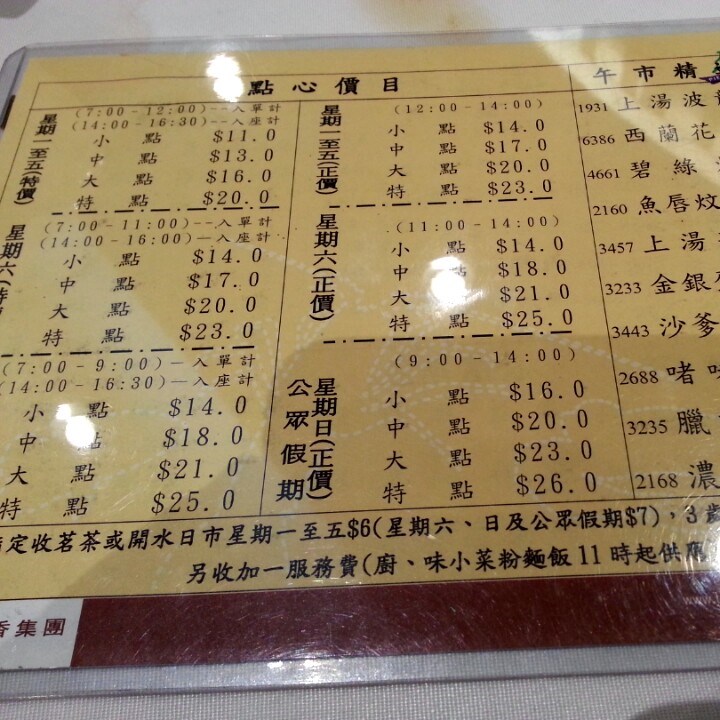 點心價目
星期一至五(特價)
(7:00-12:00)--入單計
(14:00-16:30)--入座計
小點 $11.0
中點 $13.0
大點 $16.0
特點 $20.0
星期六(特
(7:00-11:00)--入單計
(14:00-16:00)--入座計
小點 $14.0
中點 $17.0
大點 $20.0
特點 $23.0
(7:00-9:00)--入單計
(14:00-16:30)--入座計
小點 $14.0
中點 $18.0
大點 $21.0
特點 $25.0
星期一至五(正價)
(12:00-14:00)
小點 $14.0
中點 $17.0
大點 $20.0
特點 $23.0
星期六(正價)
(11:00-14:00)
小點 $14.0
中點 $18.0
大點 $21.0
特點 $25.0
星期日(正價)
公眾假期
(9:00-14:00)
小點 $16.0
中點 $20.0
大點 $23.0
特點 $26.0
午市精
1931 上湯波
6386 西蘭花
4661 碧綠
2160 魚唇炆
3457 上湯
3233 金銀
3443 沙爹
2688 啫
3235 臘
2168 濃
定收茗茶或開水日市星期一至五$6(星期六、日及公眾假期$7)，3歲
另收加一服務費(廚、味小菜粉麵飯11時起供應
香集團